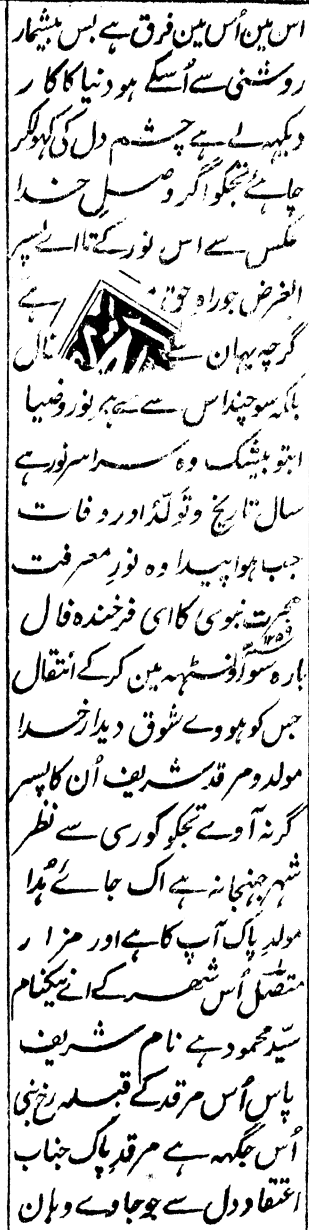 اس مین اُس مین فرق ہے بس بیشمار
روشنی سے اُسکے ہو دنیا کا کار
دیکہہ لے ہے چشم دل کی کہولکر
چاہئے تجکو اگر وصل خدا
عکس سے اس نور کے تا اے پسر
الغرض جو راہ حق ہے
گرچہ یہان سے
بلکہ سو چند اس سے ہے پر نور و ضیا
ابتو بیشک وہ سراسر نور ہے
سال تاریخ و تولّد اور وفات
جب ہوا پیدا وہ نور معرفت
ہجرت نبوی کا ای فرخندہ فال
بارہ سو اونسٹہہ مین کر کے انتقال
۱۲۵۹
جس کو ہووے شوق دیدار خدا
مولد و مرقد شریف اُن کا پسر
گر نہ آوے تجکو کوری سے نظر
شہر جہنجانہ ہے اک جائے ہُدا
مولد پاک آپ کا ہے اور مزار
متصّل اُس شہر کے اے نیکنام
سیّد محمود ہے نام شریف
پاس اُس مرقد کے قبلہ رخ
اُس جگہہ ہے مرقد پاک جناب
اعتقاد دل سے جو جاوے وہان